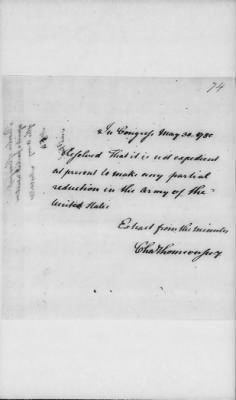 74
In Congress May 30. 1780
Resolved That it is not expedient
at present to make any partial
reduction in the Army of the
United States
Extract from the minutes
Cha Thomson secy